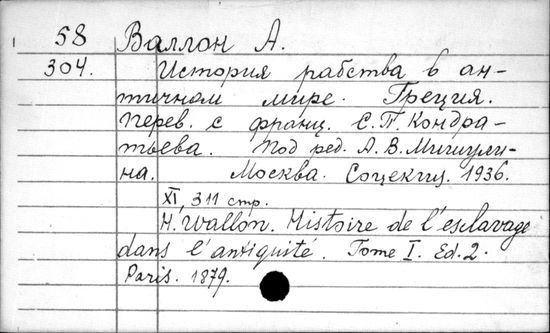 58 Валлон А.
304. История рабства в ан-
тичном мире. Греция.
Перев. с франц. С.П. Кондра-
тьева. Под ред. А.В. Мишули-
на. Москва. Соцекгиз. 1936.
XI, 311 стр.
H. Wallon. Histoire de l'esclavage
dans l'antiquité. Tome I. Ed. 2.
Paris. 1879.